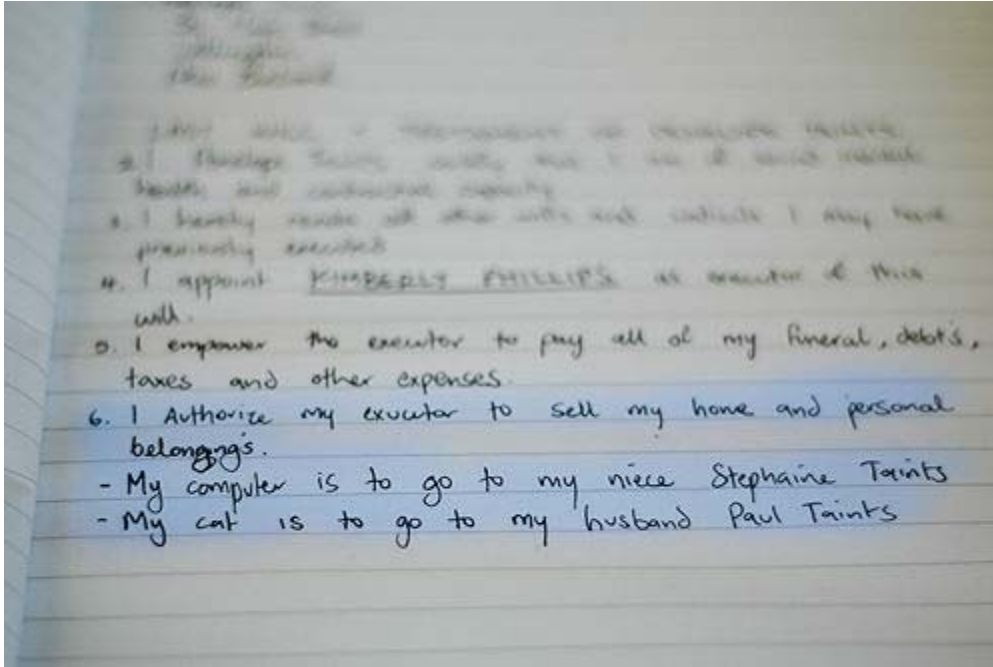 2. I Penelope Taints certify that I am of sound mental
health and contractual capacity
3. I hereby revoke all other wills and codicils I may have
previously executed
4. I appoint KIMBERLY PHILLIPS as executor of this
will.
5. I empower the executor to pay all of my funeral, debt's,
taxes and other expenses.
6. I Authorize my exucutor to sell my home and personal
belongng's.
- My computer is to go to my niece Stephaine Taints
- My cat is to go to my husband Paul Taints